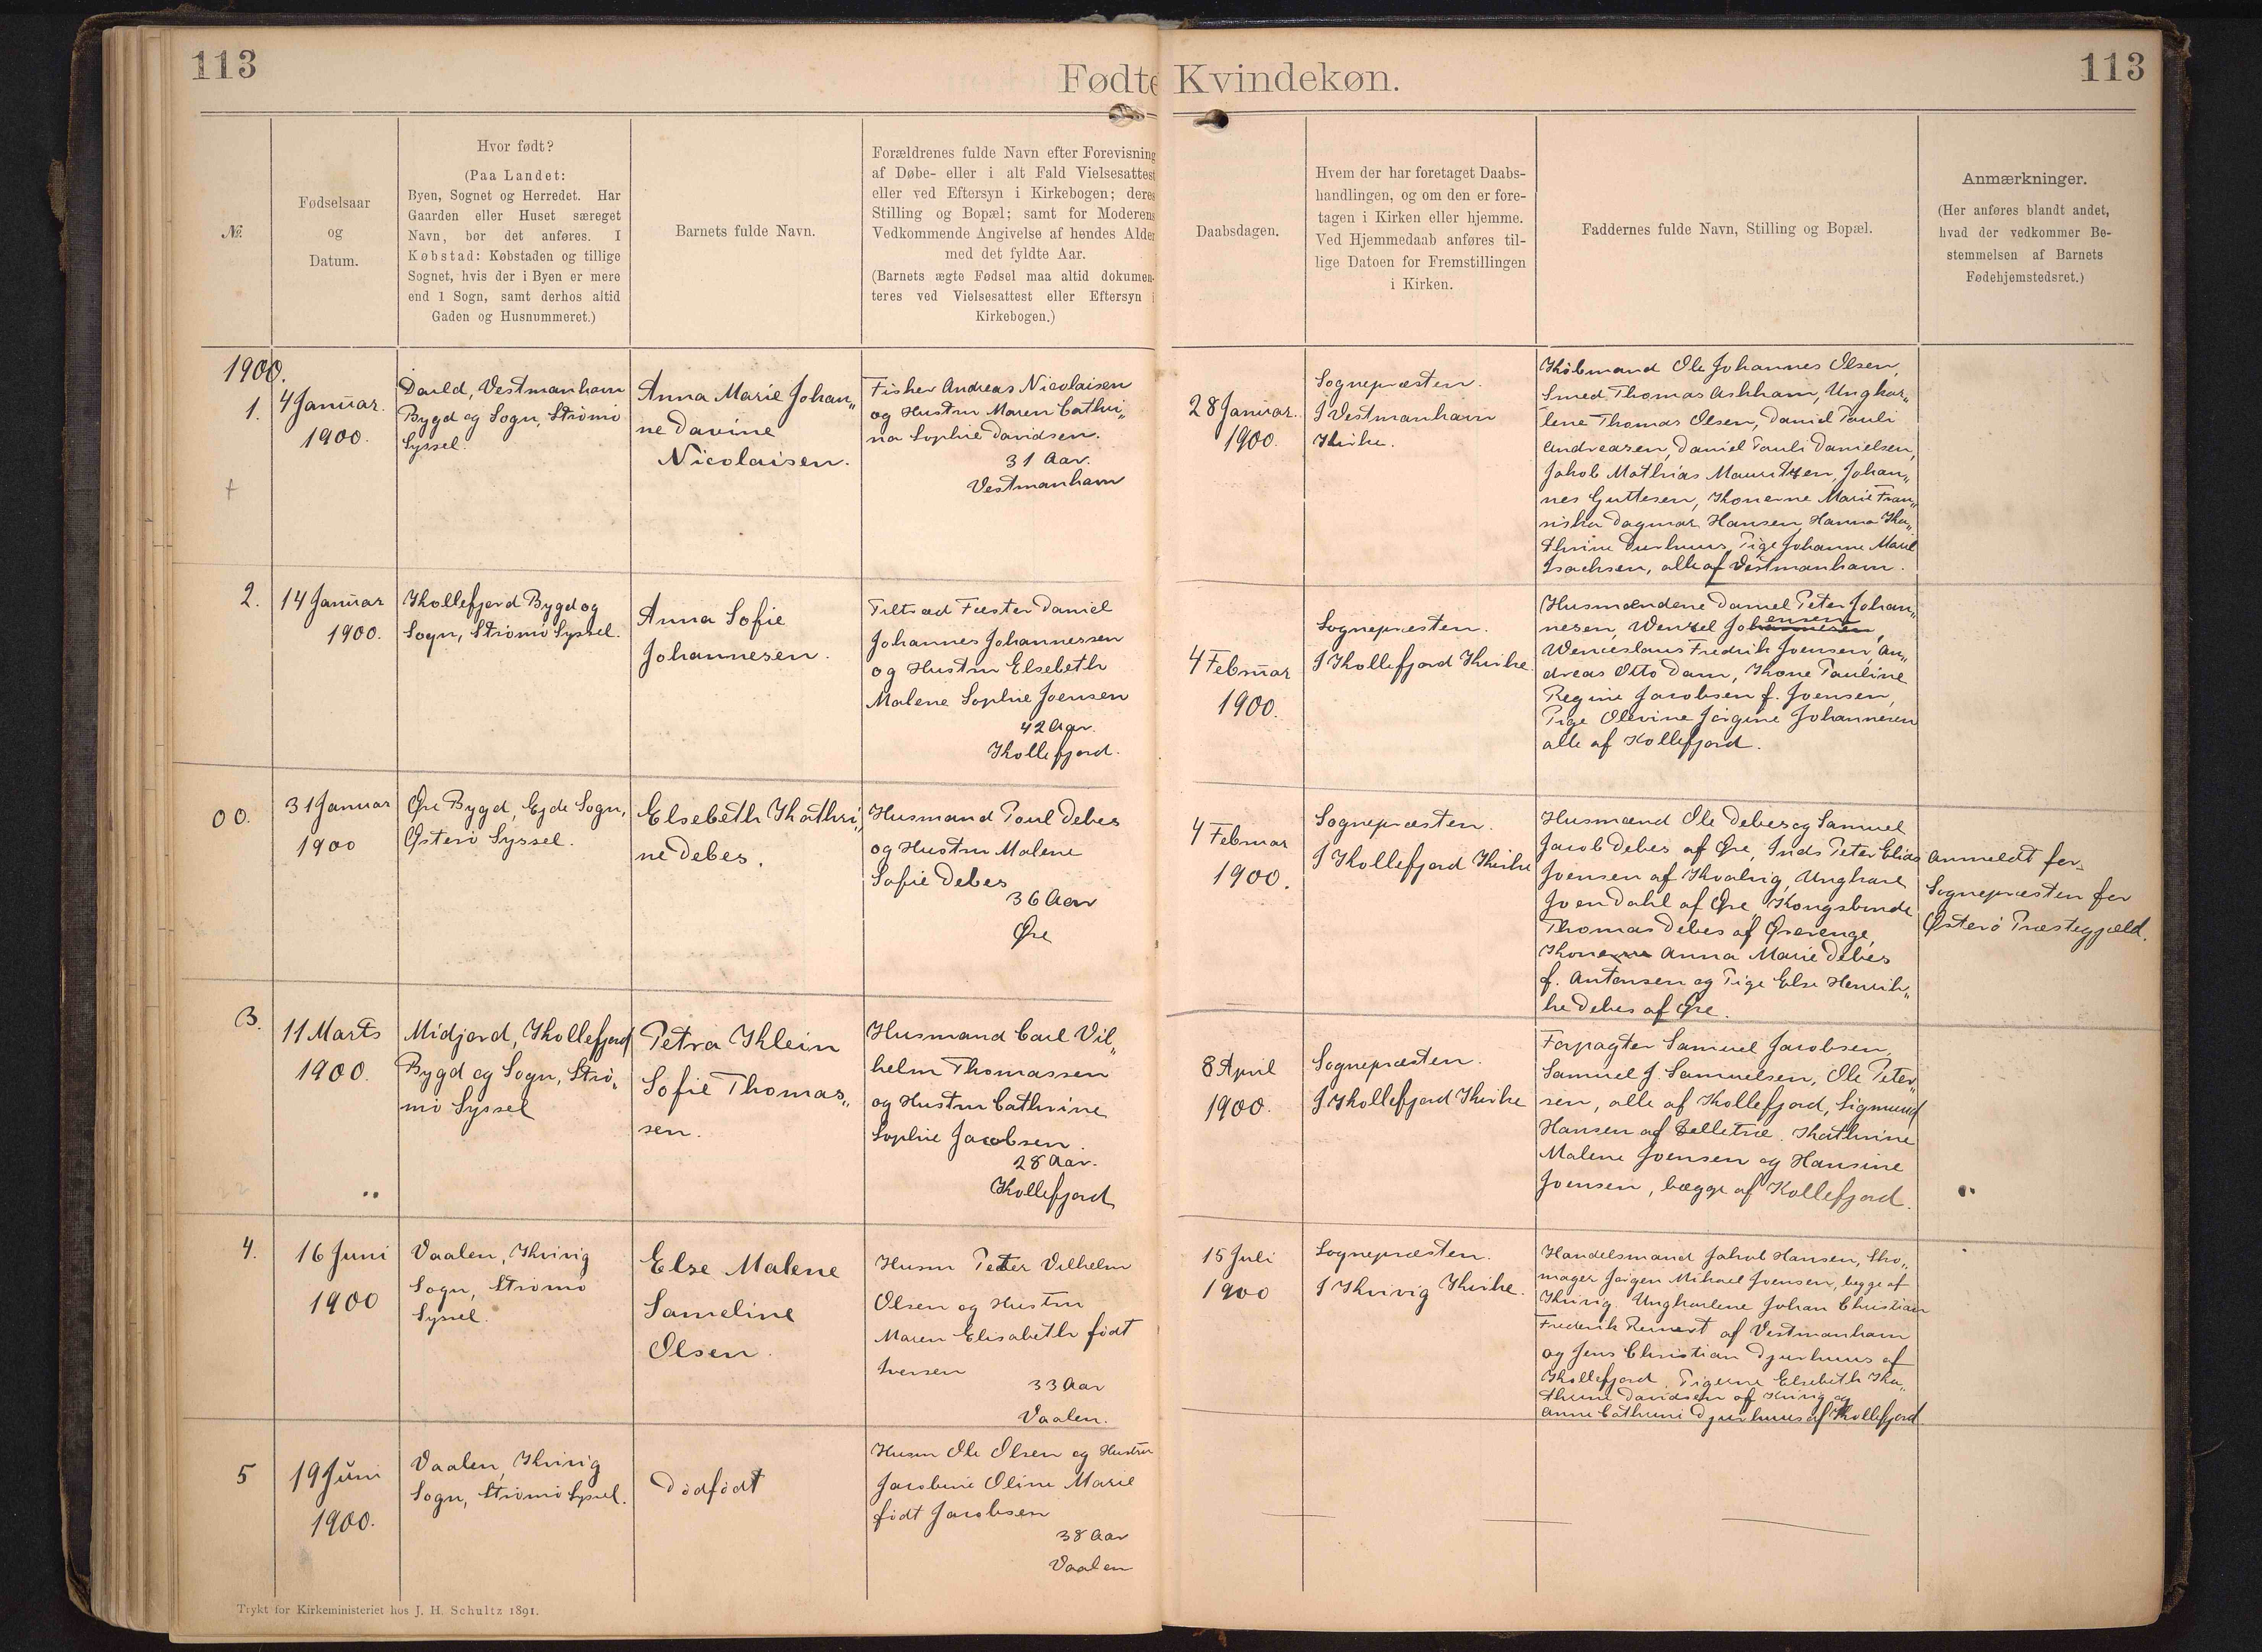 113
Fødte Kvindekøn.
113
№
Fødselsaar
og
Datum.
Hvor født?
(Paa Landet:
Byen, Sognet og Herredet. Har
Gaarden eller Huset særeget
Navn, bør det anføres. I
Købstad: Købstaden og tillige
Sognet, hvis der i Byen er mere
end 1 Sogn, samt derhos altid
Gaden og Husnummeret.)
Barnets fulde Navn.
Forældrenes fulde Navn efter Forevisning
af Døbe- eller i alt Fald Vielsesattest
eller ved Eftersyn i Kirkebogen; deres
Stilling og Bopæl; samt for Moderens
Vedkommende Angivelse af hendes Alder
med det fyldte Aar.
(Barnets ægte Fødsel maa altid dokumen-
teres ved Vielsesattest eller Eftersyn i
Kirkebogen.)
Daabsdagen.
Hvem der har foretaget Daabs-
handlingen, og om den er fore-
tagen i Kirken eller hjemme.
Ved Hjemmedaab anføres til-
lige Datoen for Fremstillingen
i Kirken.
Faddernes fulde Navn, Stilling og Bopæl.
Anmærkninger.
(Her anføres blandt andet,
hvad der vedkommer Be-
stemmelsen af Barnets
Fødehjemstedsret.)
1900.
1.
4 Januar.
1900.
Vestmanhavn
Bygd og Sogn, Strömö
Syssel.
Anna Marie Johan„
ne Davine
Nicolaisen.
Fisker Andreas Nicolaisen
og Hustru Maren Cathri„
na Sophie Davidsen.
31 Aar.
Vestmanhavn
28 Januar.
1900.
Sognepræsten.
I Vestmanhavn
Kirke.
Kôbmand Ole Johannes Olsen,
Smed Thomas Askham, Ungkar„
lene Thomas Olsen, Daniel Pauli
Andreasen, Daniel Pauli Danielsen,
Jakob Mathias Mauritzen, Johan„
nes Guttesen, Konerne Marie Fran„
siska Dagmar Hansen, Hanna Ka„
thrine Durhuus, Pige Johanne Marie
Isachsen, alle af Vestmanhavn.
2.
14 Januar
1900.
Kollefjord Bygd og
Sogn, Strömö Syssel.
Anna Sofie
Johannesen.
Daniel
Johannes Johannessen
og Hustru Elsebeth
Malene Sophie Joensen
42 Aar.
Kollefjord.
4 Februar
1900.
Sognepræsten.
I Kollefjord Kirke.
Husmændene Daniel Peter Johan„
nesen, Wenzel Johannesen, ensen
Wenceslaus Fredrik Joensen, An„
dreas Otto Dam, Kone Pauline
Regine Jacobsen f. Joensen,
Pige Olevine Jörgine Johannesen
alle af Kollefjord.
00.
31 Januar
1900
Øre Bygd, Ejde Sogn,
Østerö Syssel.
Elsebeth Kathri„
ne Debes.
Husmand Poul Debes
og Hustru Malene
Sofie Debes
36 Aar
Øre
4 Februar
1900.
Sognepræsten.
I Kollefjord Kirke
Husmænd Ole Debes og Samuel
Jacob Debes af Øre, Inds Peter Elias
Joensen af Kvalvig, Ungkarl
Joen Dahl af Øre, Kongsbonde
Thomas Debes af Ørerenge,
Kone Anna Marie Debes
f. Antonsen og Pige Else Henrik„
ke Debes af Øre.
Anmeldt for
Sognepræsten for
Østerö Præstegjæld.
3.
11 Marts
1900.
Midjord, Kollefjord
Bygd og Sogn, Strö„
mö Syssel
Petra Klein
Sofie Thomas„
sen.
Husmand Carl Vil„
helm Thomassen
og Hustru Cathrine
Sophie Jacobsen.
28 Aar.
Kollefjord
8 April
1900.
Sognepræsten.
I Kollefjord Kirke
Forpagter Samuel Jacobsen,
Samuel J. Samuelsen, Ole Peter„
sen, alle af Kollefjord, Sigmund
Hansen af Selletræ. Kathrine
Malene Joensen og Hansine
Joensen, begge af Kollefjord.
4.
16 Juni
1900
Vaalen, Kvivig
Sogn, Strömö
Syssel.
Else Malene
Sameline
Olsen.
Husm Peter Vilhelm
Olsen og Hustru
Maren Elisabeth födt
Iversen
33 Aar
Vaalen.
15 Juli
1900
Sognepræsten.
I Kvivig Kirke.
Handelsmand Jakob Hansen, Sko„
mager Jörgen Mikael Joensen, begge af
Kvivig. Ungkarlene Johan Christian
Frederik Reinert af Vestmanhavn
og Jens Christian Djurhuus af
Kollefjord. Pigerne Elsebeth Ka„
thrine Davidsen af Kvivig og
Anne Cathrine Djurhuus af Kollefjord
5
19 Juni
1900.
Vaalen, Kvivig
Sogn, Strömö Syssel.
Dödfödt
Husm Ole Olsen og Hustru
Jacobine Oline Marie
födt Jacobsen
38 Aar
Vaalen
Trykt for Kirkeministeriet hos J. H. Schultz 1891.